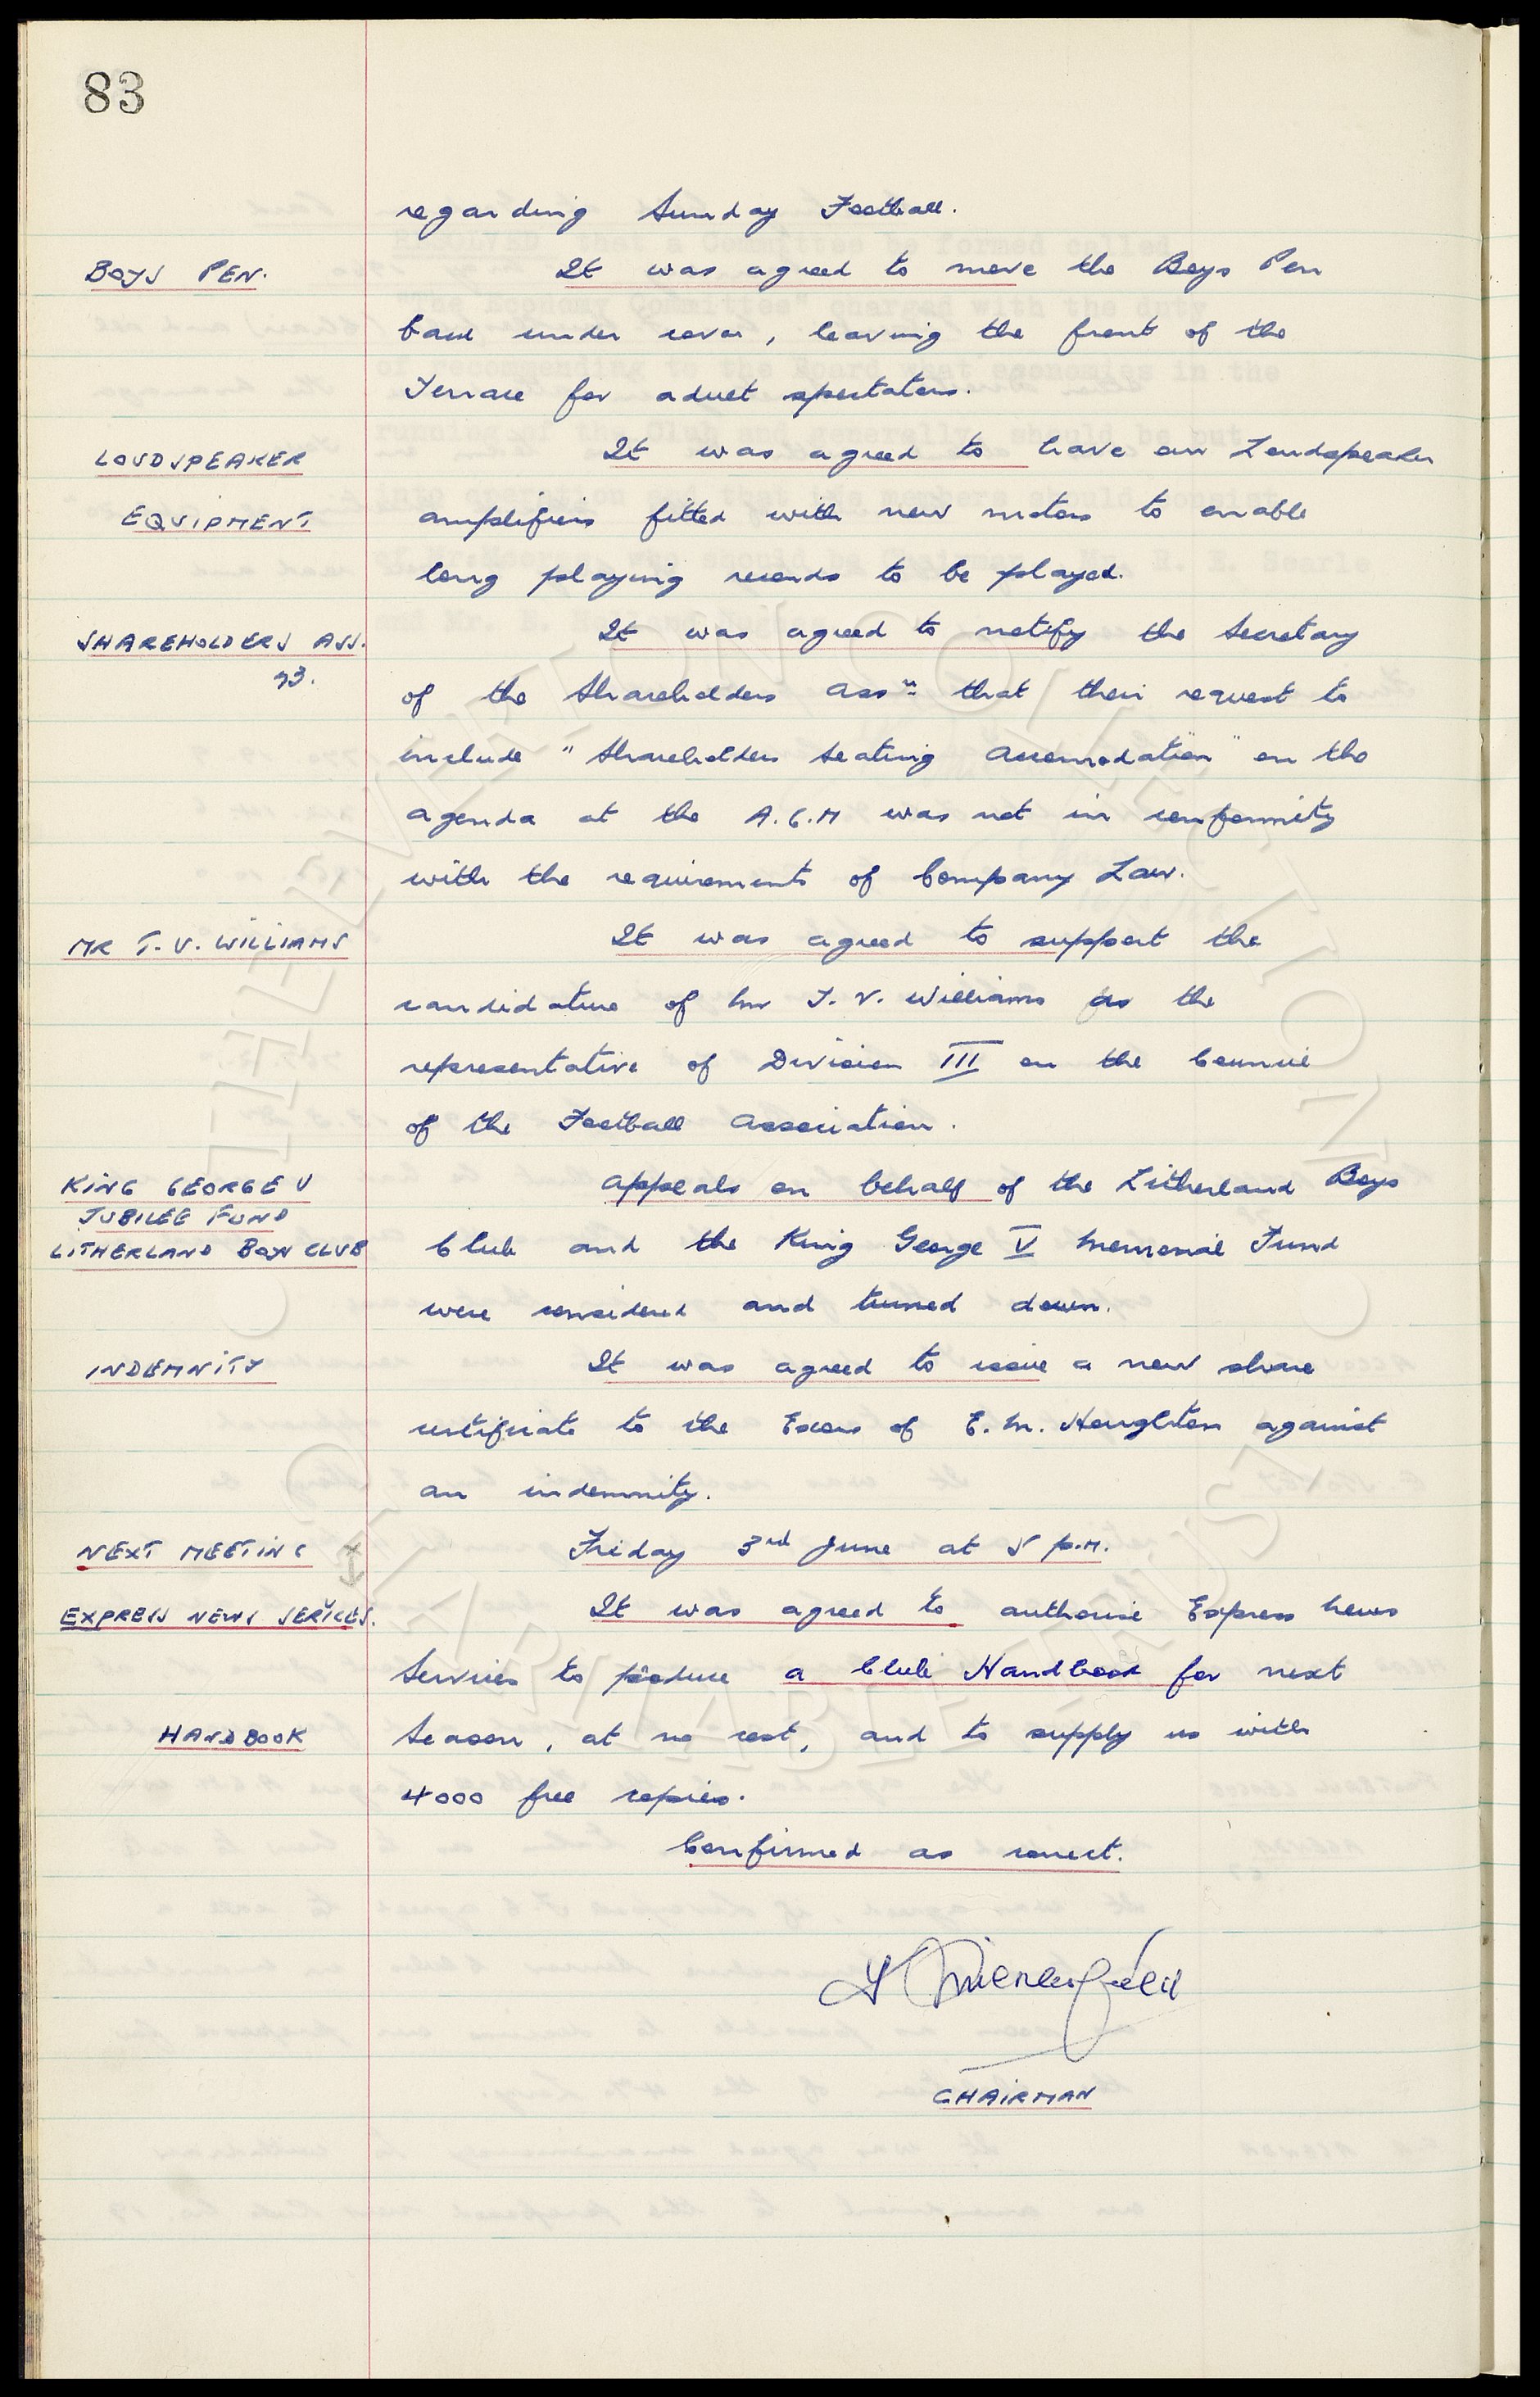 83
regarding Sunday Football.
BOYS PEN. It was agreed to move the Boys Pen
back under cover, leaving the front of the
Terrace for adult spectators.
LOUDSPEAKER It was agreed to have our Loudspeaker
EQUIPMENT amplifiers fitted with new motors to enable
long playing records to be played.
SHAREHOLDERS ASS. It was agreed to notify the Secretary
93. of the Shareholders Assn that their request to
include "Shareholders Seating Accomodation" on the
agenda at the A.G.M was not in conformity
with the requirements of Company Law.
MR T.V. WILLIAMS It was agreed to support the
candidature of Mr T.V. Williams as the
representative of Division III on the Council
of the Football Association.
KING GEORGE V Appeals on behalf of the Litherland Boys
JUBILEE FUND
LITHERLAND BOYS CLUB Club and the King George V Memorial Fund
were considered and turned down.
INDEMNITY It was agreed to issue a new share
certificate to the Execs of E.M. Houghton against
an indemnity.
NEXT MEETING Friday 3rd June at 5 p.m.
EXPRESS NEWS SERVICES. It was agreed to authorise Express News
Services to produce a Club Handbook for next
HANDBOOK Season, at no cost, and to supply us with
4000 free copies.
Confirmed as correct.
CHAIRMAN
EVERTON COLLECTION CHARITABLE TRUST